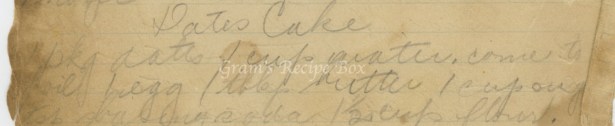 Dates Cake
1 pkg dates 1 cup water, come to
Grant's Recipe Box
boil 1 egg 1 tbsp butter 1 cup
baking soda 1 1/2 cup flour.